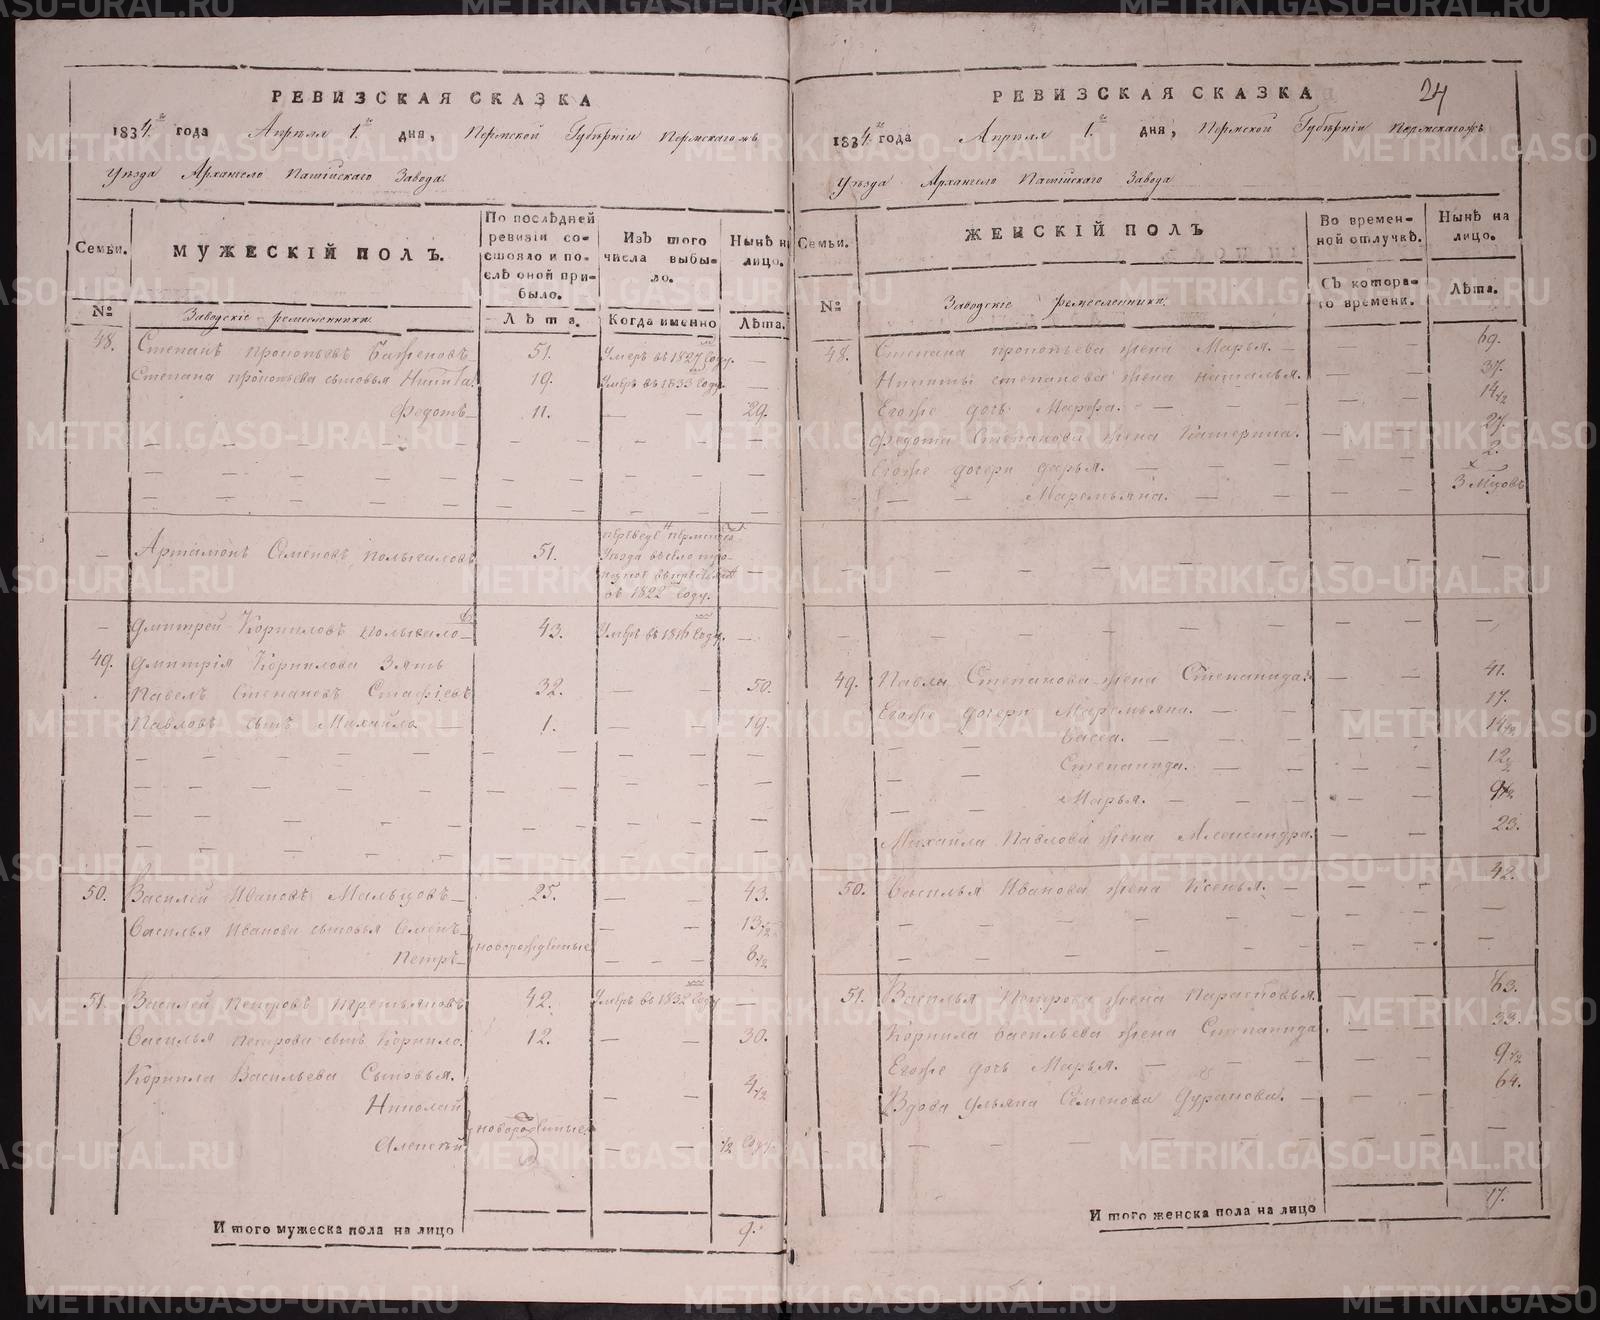 РЕВИЗСКАЯ СКАЗКА
1834.го года Апреля 1.го дня, Пермской Губѣрніи Пермскагожъ
Уѣзда Архангело Пашійскаго Завода.
Семьи.
МУЖЕСКІЙ ПОЛЪ.
По послѣдней ревизіи состояло и послѣ оной прибыло.
Изъ того числа выбыло.
Нынѣ на лицо.
№
Заводскіе ремесленники.
Лѣта.
Когда именно
Лѣта.
48. Степанъ Прокопьевъ Баженовъ 51. Умеръ въ 1827 году. —
Степана Прокопьева сыновья Никита 19. Умеръ въ 1833 году. —
Федотъ 11. — — 29.
— Артамонъ Семеновъ 51.
въ 1822 году.
— Дмитрей Корниловъ 43. Умеръ въ 1816 году. —
49. Дмитрія Корнилова Зять
Павелъ Степановъ 32. — — 50.
Павловъ сынъ Михайло 1. — — 19.
50. Василей Ивановъ Мальцовъ 25. — — 43.
Василья Иванова сыновья Семенъ — — 13 1/2
Петръ новорожденные — — 8 1/2
51. Василей Петровъ Третьяковъ 42. Умеръ въ 1832 году —
Василья Петрова сынъ Корнило. 12. — — 30.
Корнила Васильева Сыновья.
Николай — 4 1/2
Алексѣй новорожденные — 1/2 году
Итого мужеска пола на лицо 9.
24
РЕВИЗСКАЯ СКАЗКА
1834.го года Апреля 1.го дня, Пермской Губѣрніи Пермскагожъ
Уѣзда Архангело Пашійскаго Завода
Семьи.
ЖЕНСКІЙ ПОЛЪ
Во временной отлучкѣ.
Нынѣ на лицо.
№
Заводскіе ремесленники.
Съ котораго времени.
Лѣта.
48. Степана Прокопьева жена Марья. — 69.
Никиты Степанова жена Наталья. — 37.
Егоже дочь Марфа. — 14 1/2
Федота Степанова жена Катерина. — 27.
Егоже дочери Дарья. — 2.
Маремьяна. — 3 мѣсцовъ
49. Павла Степанова жена Степанида. — 41.
Егоже дочери Маремьяна. — 17.
Васса. — 14 1/2
Степанида. — 12 1/2
Марья. — 9 1/2
Михайла Павлова жена Александра. — 23.
50. Василья Иванова жена Ксенья. — 42.
51. Василья Петрова жена Парасковья. — 63.
Корнила Васильева жена Степанида. — 33.
Егоже дочь Марья. — 9 1/2
Вдова Ульяна Семенова — 64.
Итого женска пола на лицо 17.
METRIKI.GASO-URAL.RU